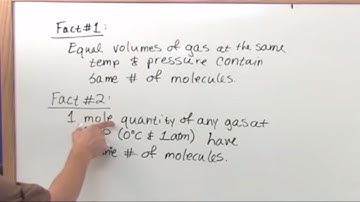 Fact #1:
Equal volumes of gas at the same
temp & pressure contain
same # of molecules.
Fact #2:
1 mole quantity of any gas at
(0°C & 1atm) have
# of molecules.